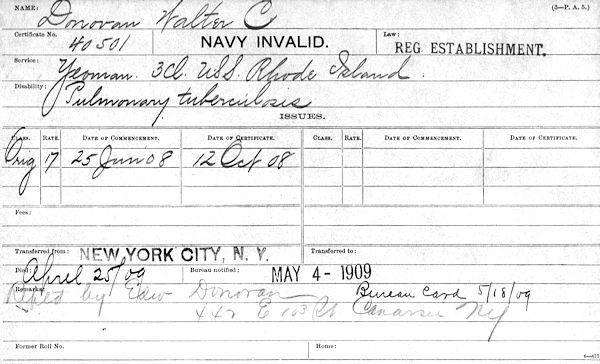 NAME: Donovan Walter C (3—P. A. 5.)
Certificate No. 40501 NAVY INVALID. Law: REG. ESTABLISHMENT.
Service: Yeoman 3Cl. U.S.S. Rhode Island.
Disability: Pulmonary tuberculosis
ISSUES.
CLASS. RATE. DATE OF COMMENCEMENT. DATE OF CERTIFICATE. CLASS. RATE. DATE OF COMMENCEMENT. DATE OF CERTIFICATE.
Orig 17 25 Jun 08 12 Oct 08
Fees:
Transferred from: NEW YORK CITY, N. Y. Transferred to:
Died: April 25/09 Bureau notified: MAY 4 - 1909
Remarks: by Edw Donovan Bureau Card 5/18/09
E 103 Canarsie NY
Former Roll No. Home: